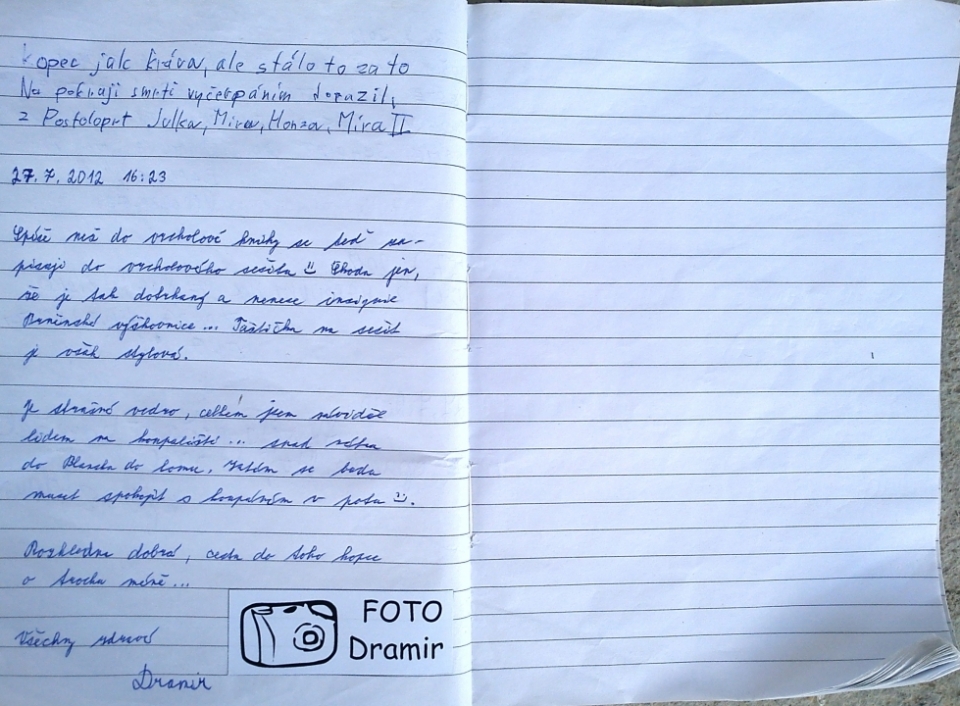 Kopec jak kráva, ale stálo to za to
Na pokraji smrti vyčerpáním dorazili
z Postoloprt Julka, Míra, Honza, Míra II
27. 7. 2012 16:23
Spíše než do vrcholové knihy se teď za-
pisuji do vrcholového sešitu Škoda jen,
že je tak dotrhaný a nenese insignie
výškovnice... Taštička na sešit
je však stylová.
Je strašné vedro, celkem jsem záviděl
lidem na koupališti... snad zítra
do do lomu. Zatím se budu
muset spokojit s koupáním v potu :).
Rozhledna dobrá, cesta do toho kopce
o trochu méně...
Všechny zdraví
Dramir
FOTO
Dramir